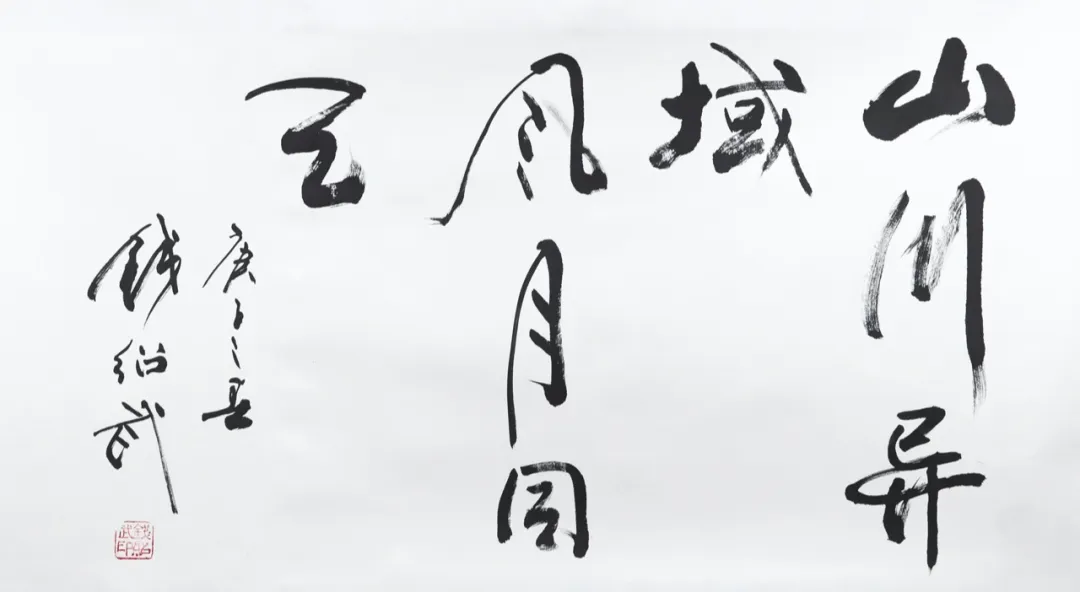 山川异
域
风月同
天
庚子之春
钱绍武
钱绍武印